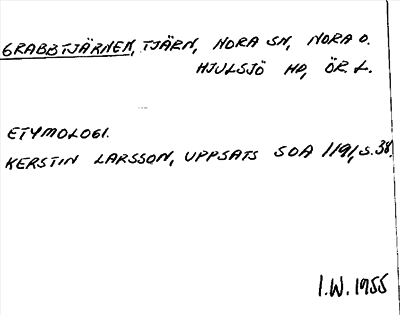 GRABBTJÄRNEN, TJÄRN, NORA SN, NORA O.
HJULSJÖ HD, ÖR. L.
ETYMOLOGI.
KERSTIN LARSSON, UPPSATS SOA 1191, S. 38.
I.W. 1955